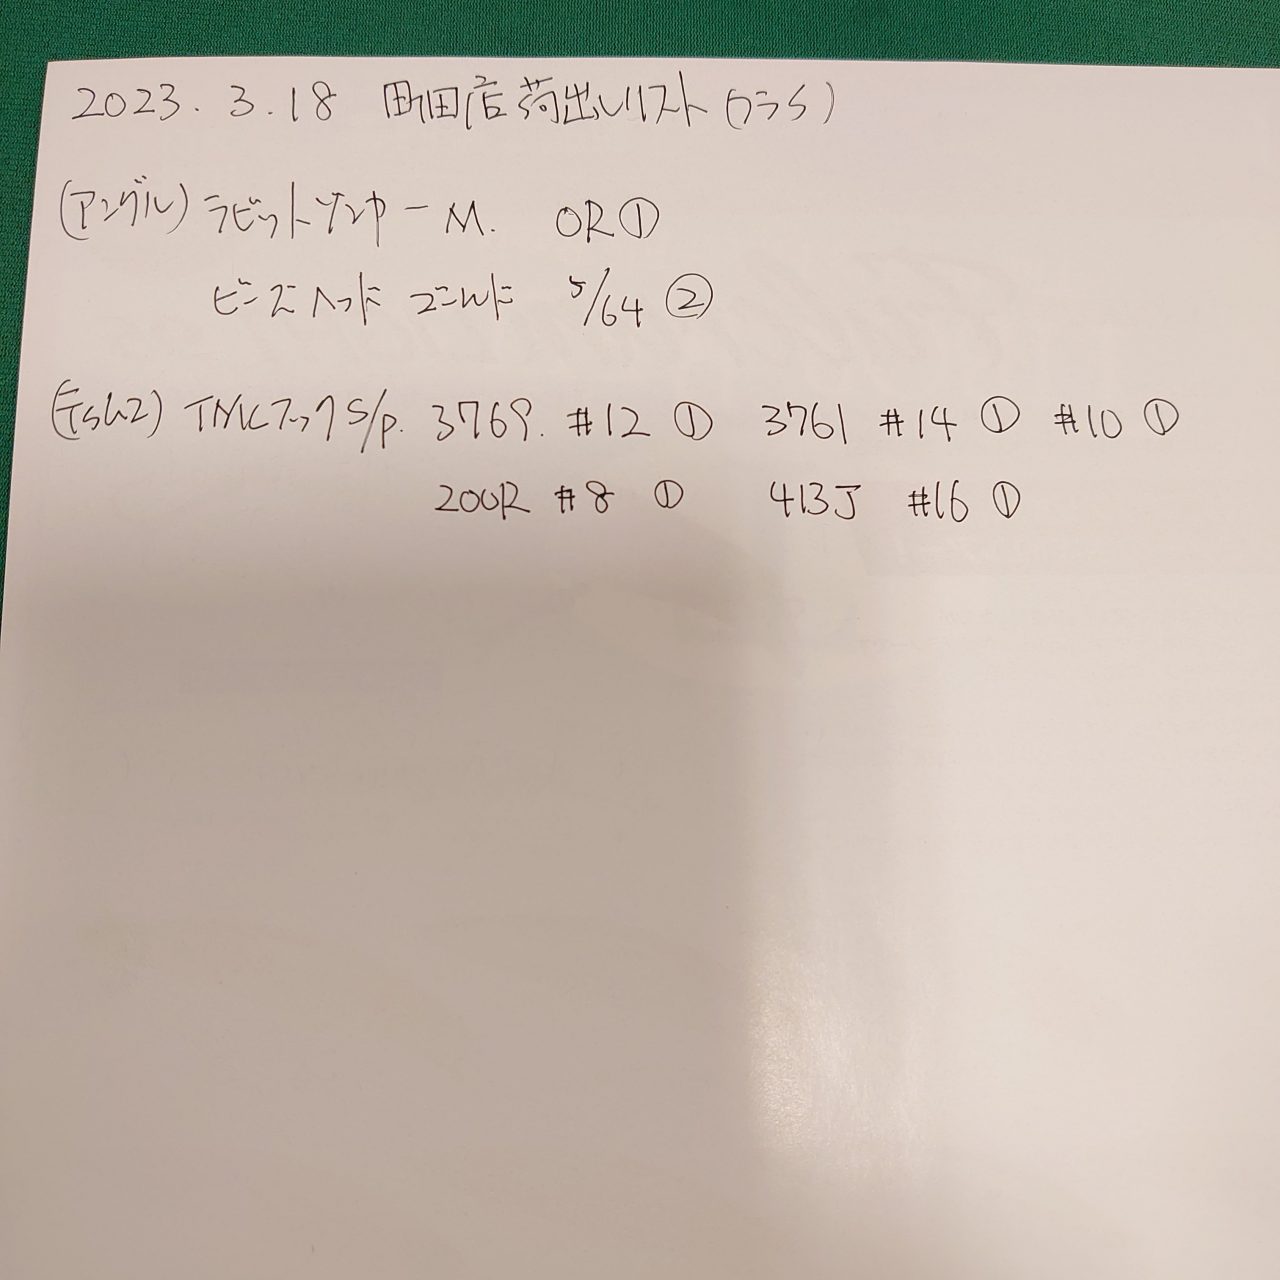 2023.3.18 町田店荷出しリスト(ウラS)
(アングル) ラビットゾンカーM. OR①
ビーズヘッド ゴールド 5/64 ②
TMCフックS/P. 3769. #12 ① 3761 #14 ① #10 ①
200R #8 ① 413J #16 ①